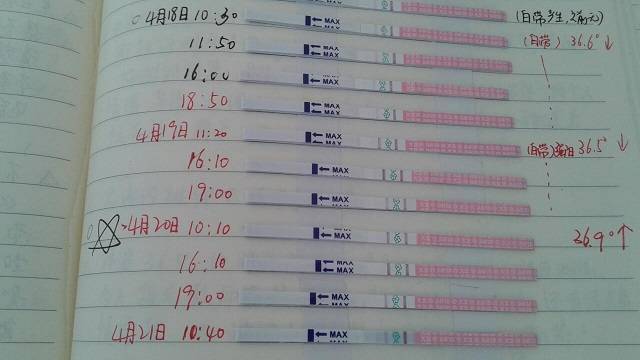 4月18日 10:30 MAX
11:50 MAX (自带) 36.6° ↓
16:00 MAX
18:50 MAX
4月19日 11:20 MAX (自带) 36.5° ↓
16:10 MAX
19:00 MAX
4月20日 10:10 MAX 36.9° ↑
16:10 MAX
19:00 MAX
4月21日 10:40 MAX